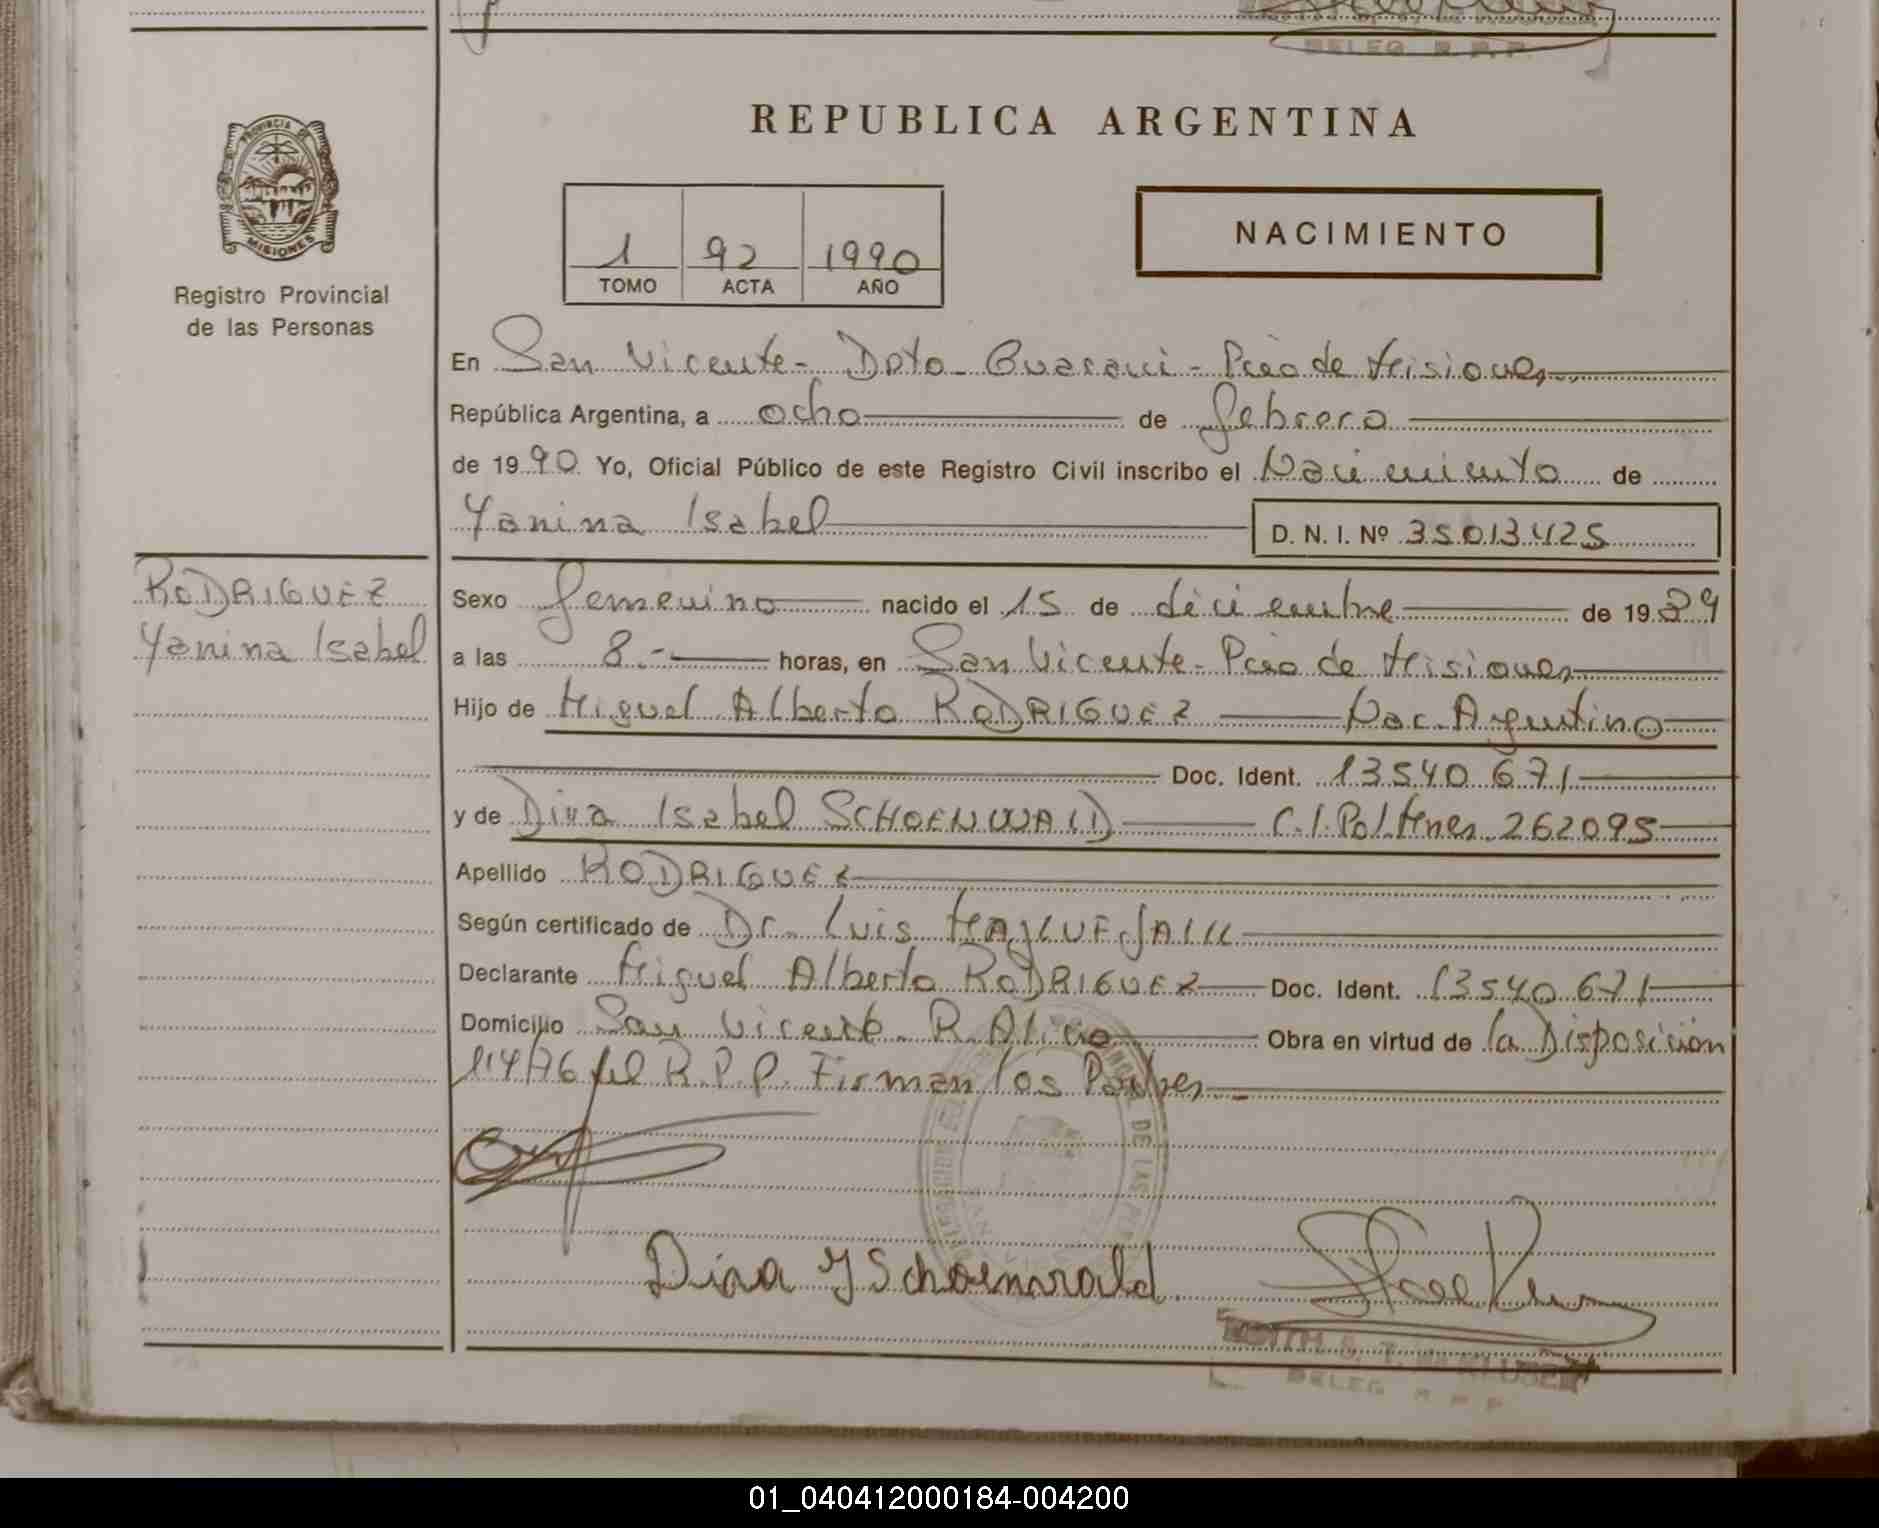 BELEG R.P.P.
REPUBLICA ARGENTINA
PROVINCIA DE
MISIONES
Registro Provincial
de las Personas
1 92 1990
TOMO ACTA AÑO
NACIMIENTO
En San Vicente - Dpto Guarani - Pcia de Misiones
República Argentina, a ocho de febrero
de 1990 Yo, Oficial Público de este Registro Civil inscribo el Nacimiento de
Yanina Isabel D. N. I. Nº 35013425
RODRIGUEZ
Yanina Isabel
Sexo femenino nacido el 15 de diciembre de 1989
a las 8.- horas, en San Vicente - Pcia de Misiones
Hijo de Miguel Alberto RODRIGUEZ Nac. Argentino
Doc. Ident. 13540671
y de Dina Isabel SCHOENWALD C.I.Pol.Mnes 262095
Apellido RODRIGUEZ
Según certificado de Dr. Luis
Declarante Miguel Alberto RODRIGUEZ Doc. Ident. 13540671
Domicilio San Vicente Obra en virtud de la Disposición
114/76 del R.P.P. Firman los Padres
DE LAS
Dina Y Schoenwald
BELEG R.P.P
01_040412000184-004200